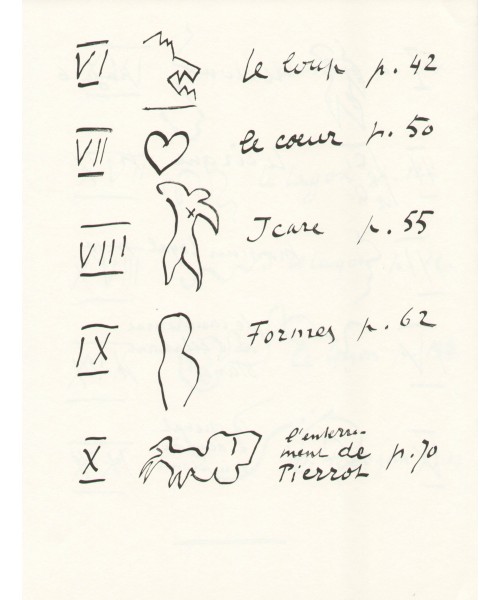 VI le loup p. 42
VII le coeur p. 50
VIII Icare p. 55
IX Formes p. 62
X l'enterre-
ment de
Pierrot p. 70